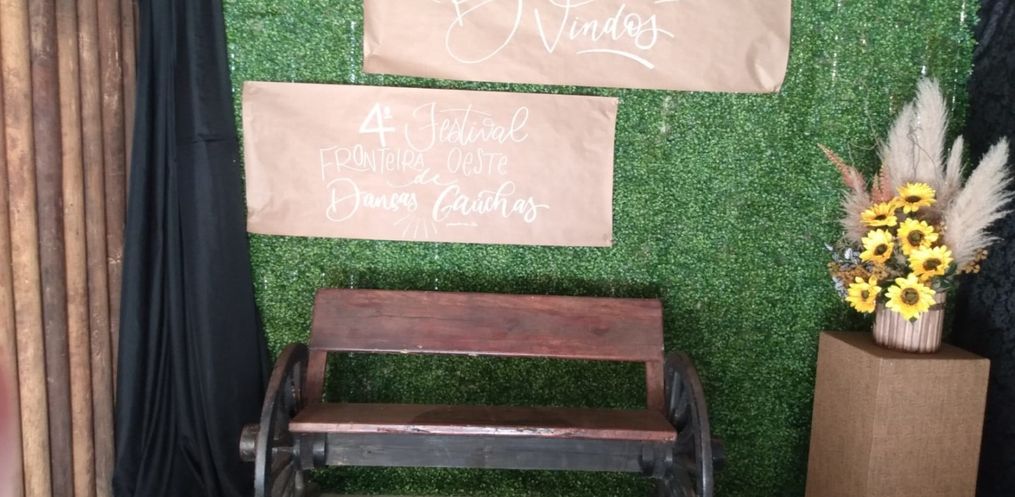 B Vindos
4º Festival
FRONTEIRA OESTE
de
Danças Gaúchas